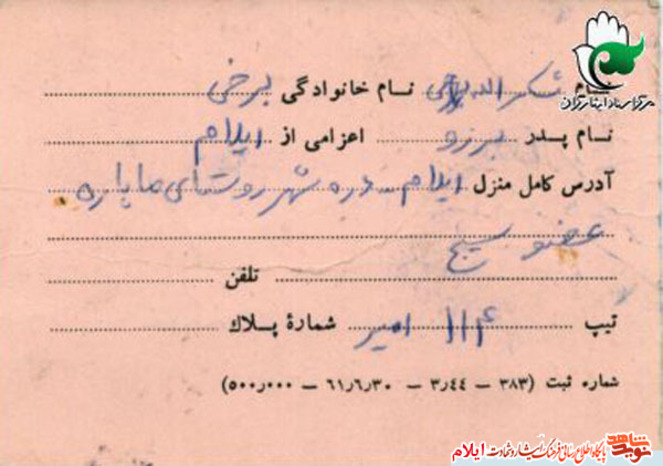 مرکز اسناد ایثارگران
نام شکراله نام خانوادگی برخی
نام پدر برزو اعزامی از ایلام
آدرس کامل منزل ایلام - دره شهر روستای ماپاره
عضو بسیج
تلفن
تیپ ۱۱۴ امیر شمارهٔ پلاك
شماره ثبت (۳۸۳ – ۳٫۴۴ – ۶۱٫۶٫۳۰ – ۵۰۰٫۰۰۰)
نوید شاهد پایگاه اطلاع رسانی فرهنگ ایثار و شهادت ایلام